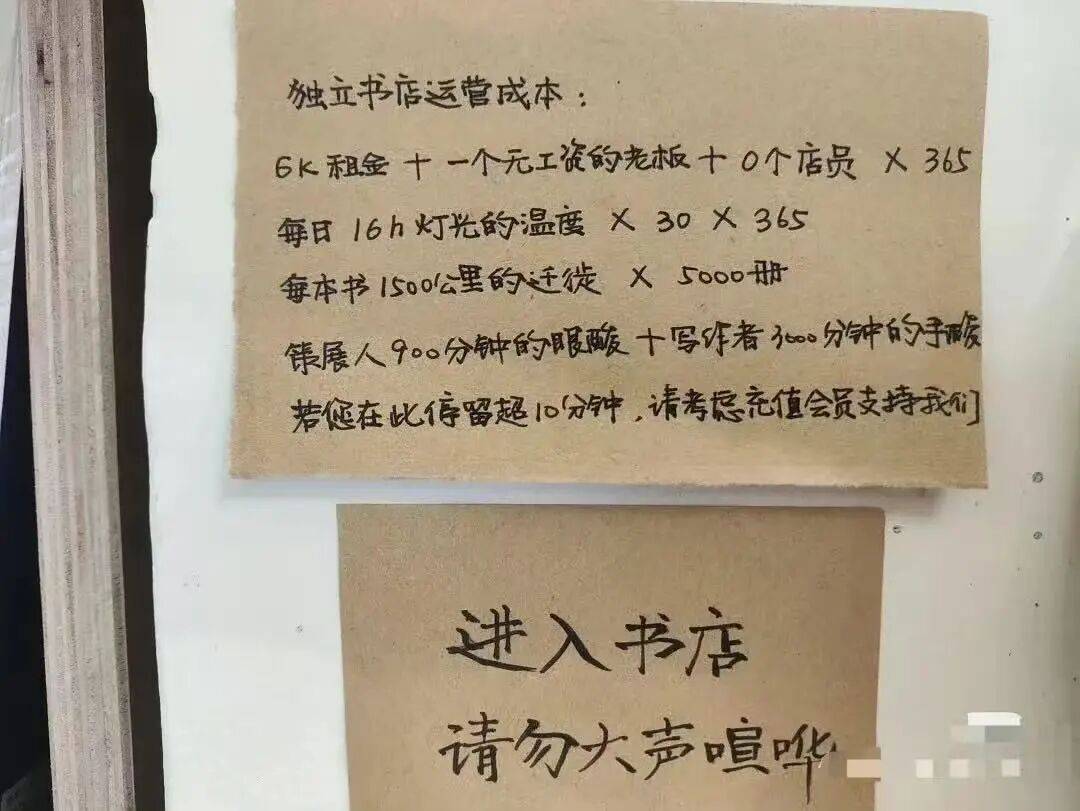 独立书店运营成本：
6K租金 + 一个无工资的老板 + 0个店员 × 365
每日16h灯光的温度 × 30 × 365
每本书1500公里的迁徙 × 5000册
策展人900分钟的眼酸 + 写作者3000分钟的手酸
若您在此停留超10分钟，请考虑充值会员支持我们
进入书店
请勿大声喧哗